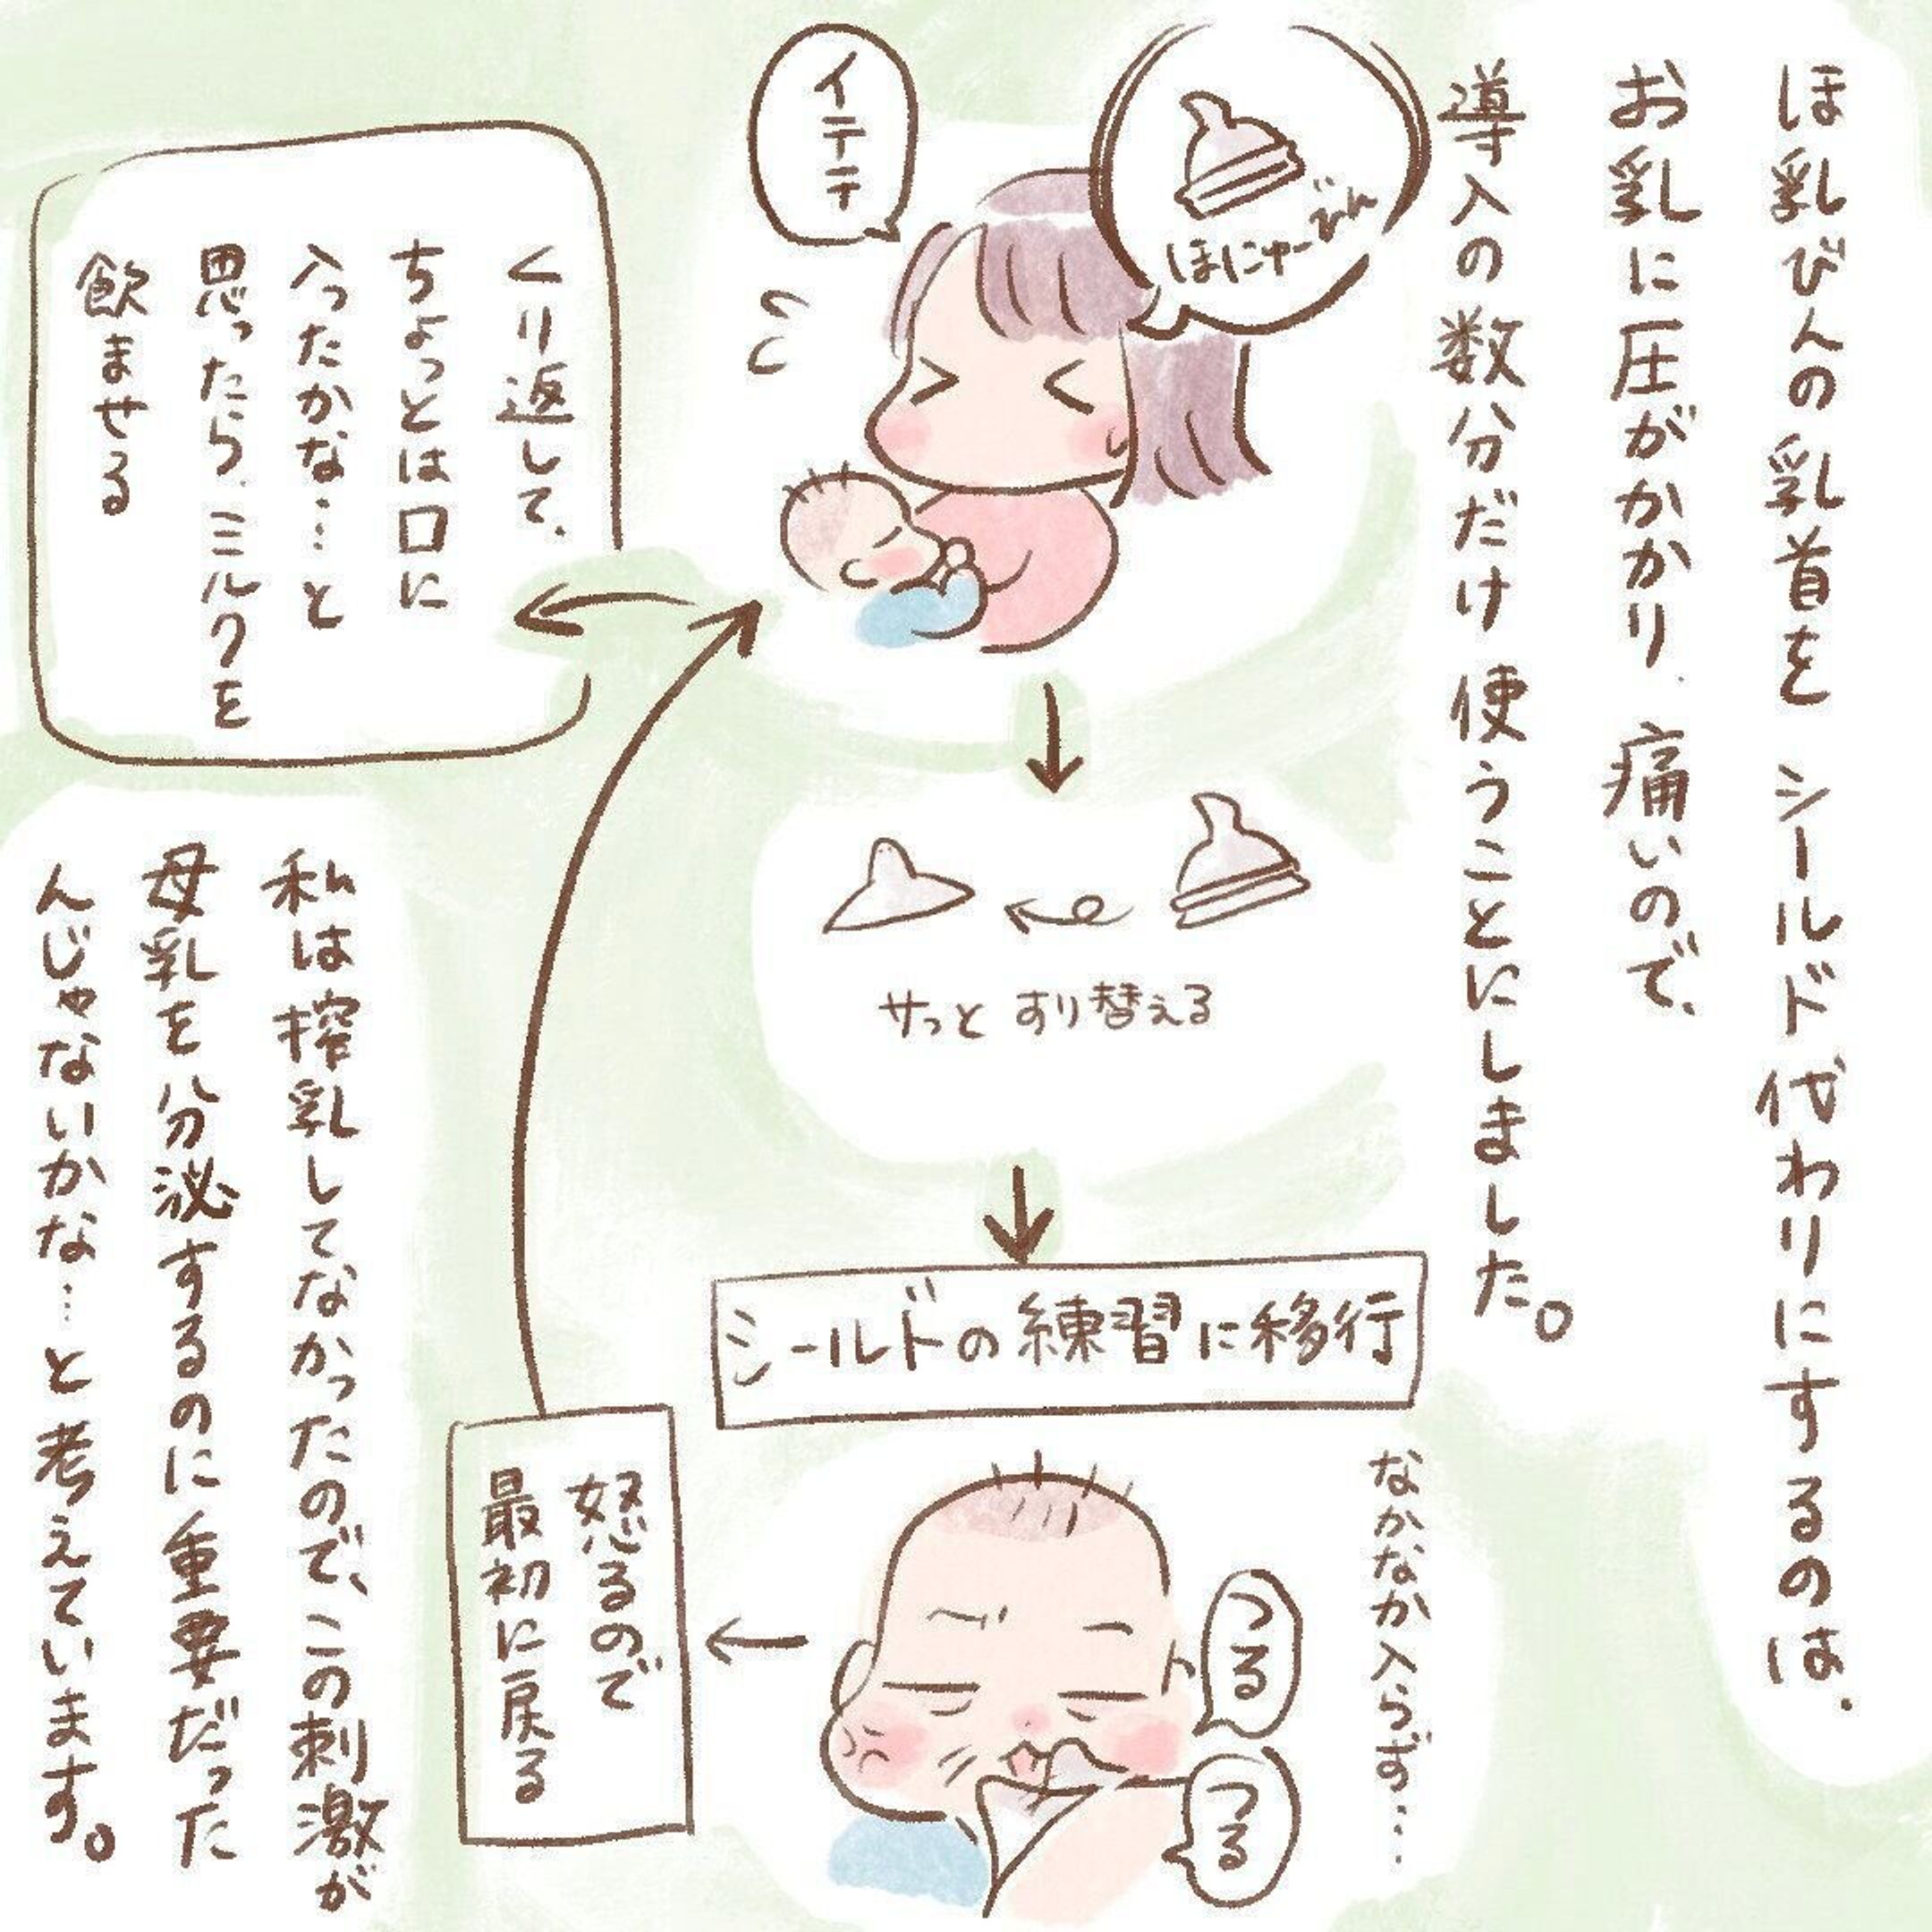 ほ乳びんの乳首を シールド代わりにするのは、
お乳に圧がかかり、痛いので、
導入の数分だけ 使うことにしました。
ほにゅーびん
イテテ
サッと すり替える
シールドの練習に移行
なかなか入らず…
つる
つる
怒るので
最初に戻る
くり返して、
ちょっとは口に
入ったかな…と
思ったら、ミルクを
飲ませる
私は搾乳してなかったので、この刺激が
母乳を分泌するのに重要だった
んじゃないかな…と考えています。